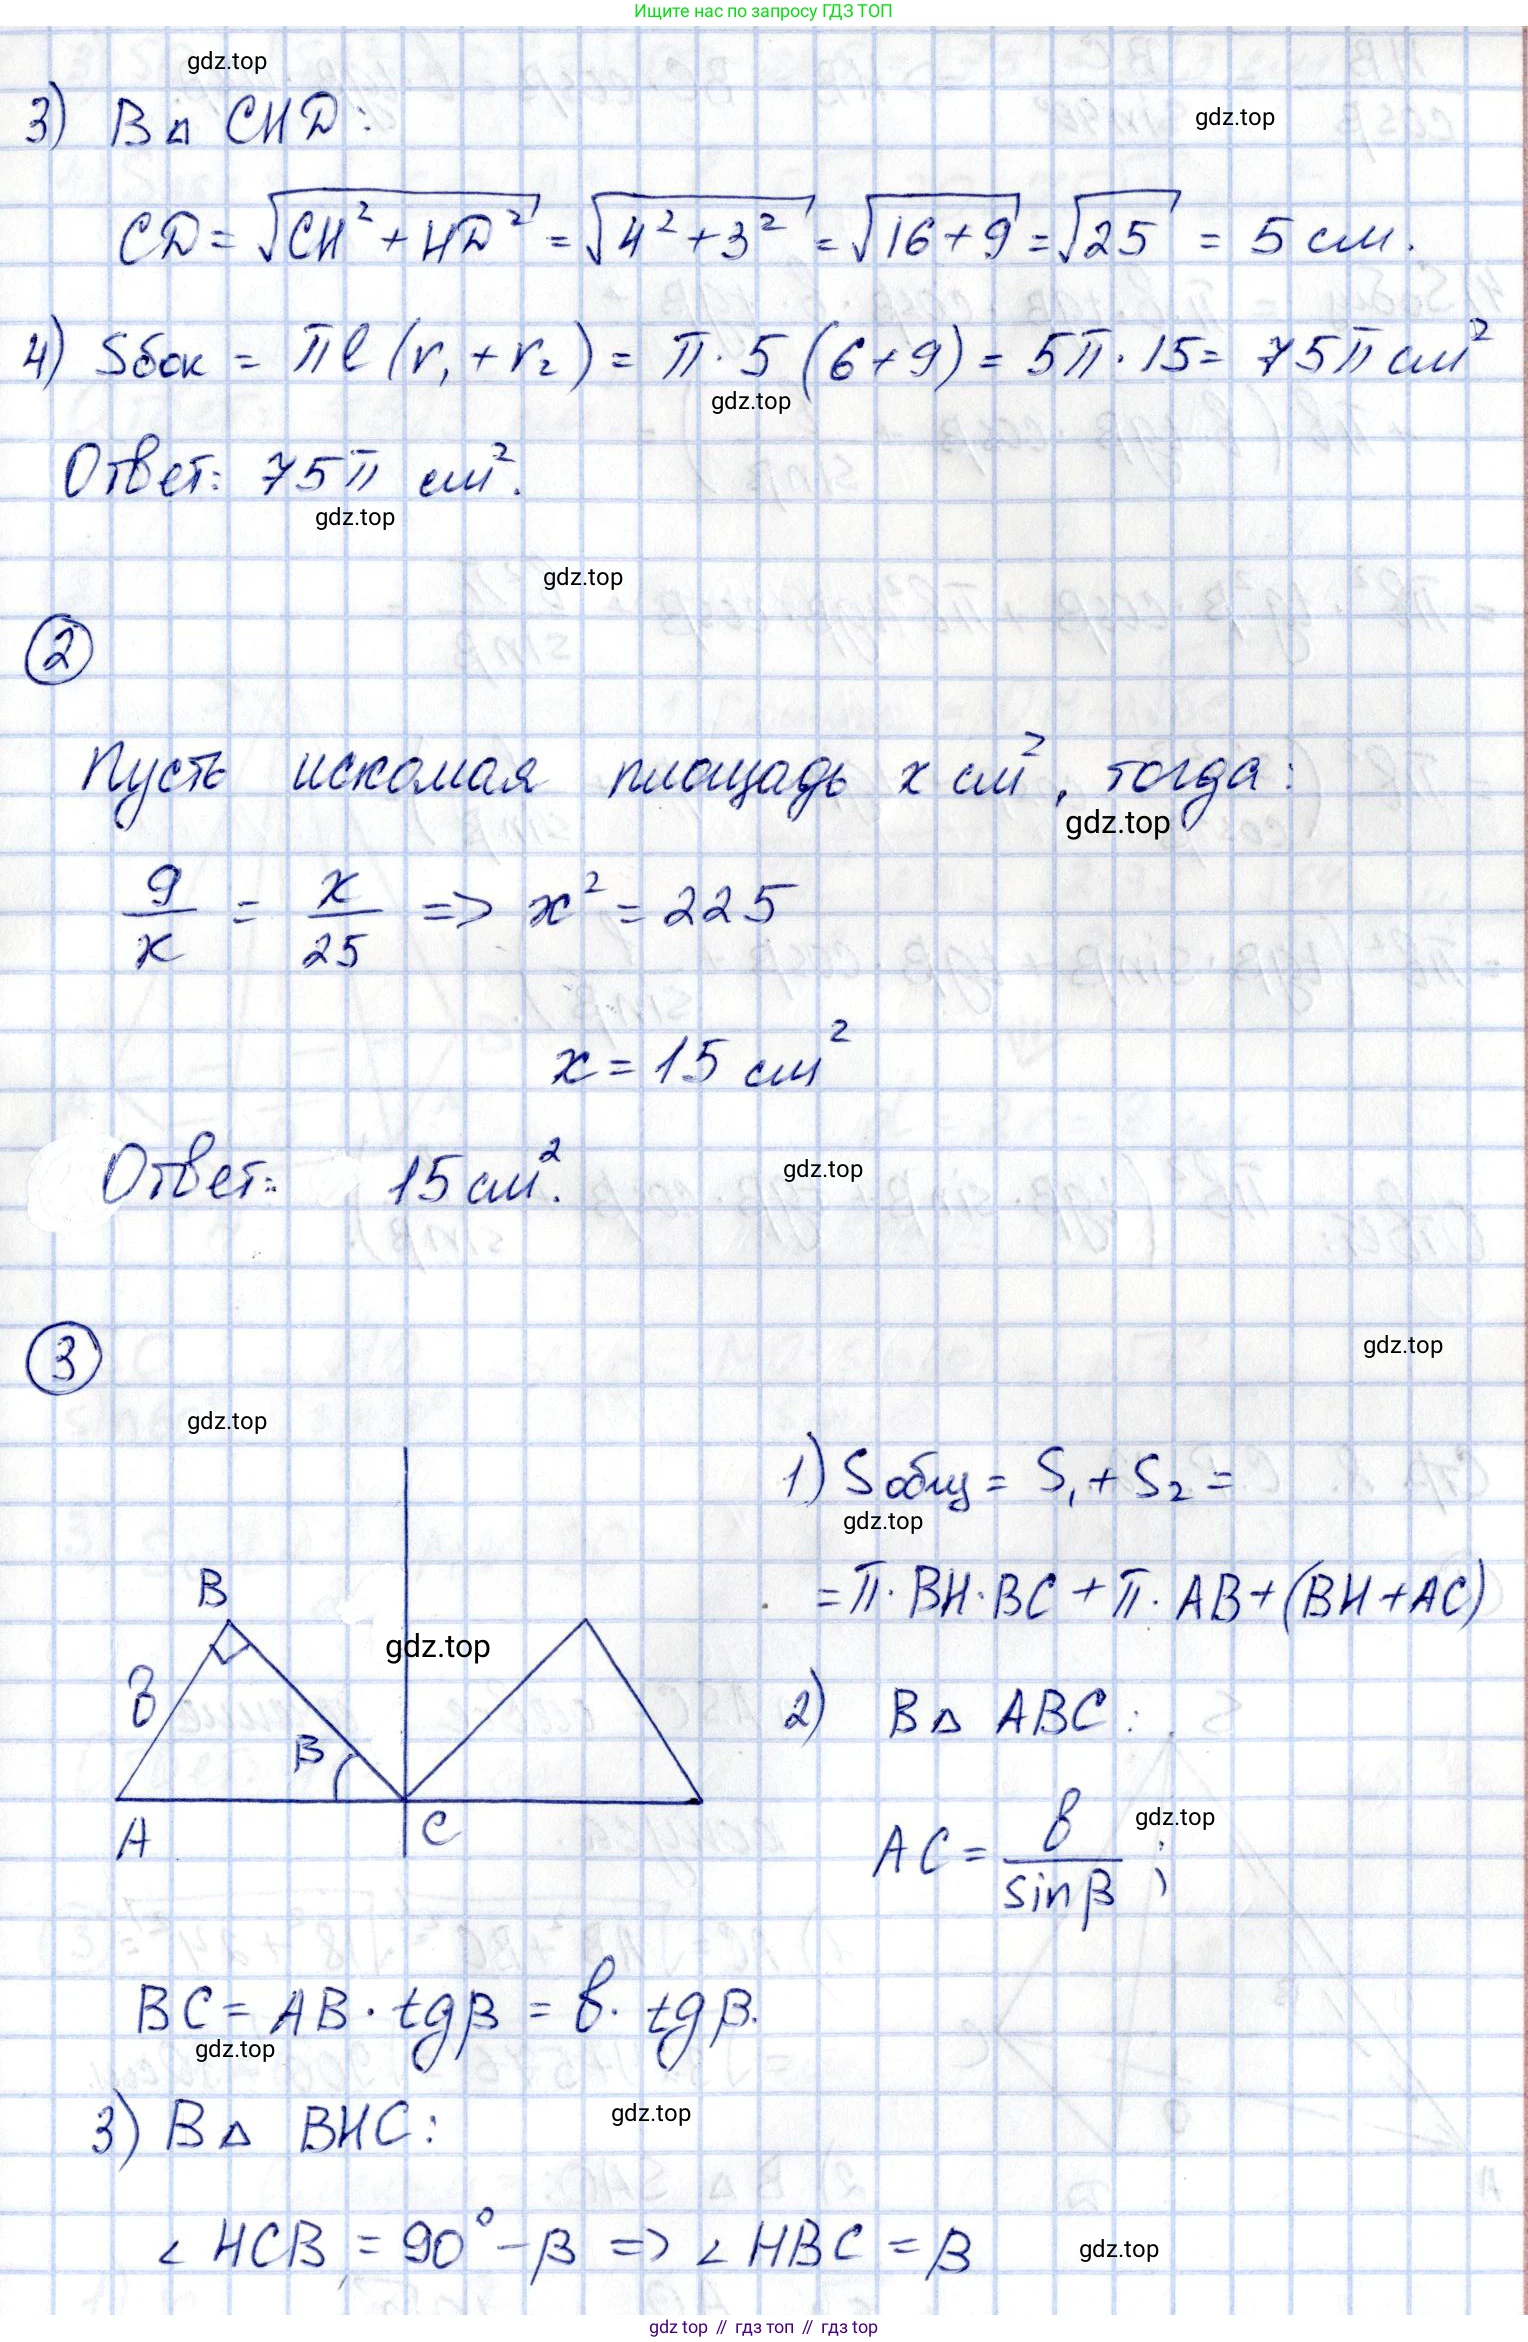 Ищите нас по запросу ГДЗ ТОП
gdz.top
3) В △ CHD:
gdz.top
CD = √(CH² + HD²) = √(4² + 3²) = √(16 + 9) = √25 = 5 см.
4) Sбок = πl (r₁ + r₂) = π · 5 (6 + 9) = 5π · 15 = 75π см²
gdz.top
Ответ: 75π см².
gdz.top
gdz.top
2
Пусть искомая площадь x см², тогда:
gdz.top
9/x = x/25 => x² = 225
x = 15 см²
Ответ: 15 см².
gdz.top
3
gdz.top
gdz.top
1) Sобщ = S₁ + S₂ =
gdz.top
= π · BH · BC + π · AB + (BH + AC)
B
gdz.top
в
β
A
C
2) В △ ABC:
AC = в/sinβ ;
gdz.top
BC = AB · tgβ = в · tgβ.
gdz.top
3) В △ BHC:
gdz.top
∠ HCB = 90° - β => ∠ HBC = β
gdz.top
gdz top // гдз топ // гдз top